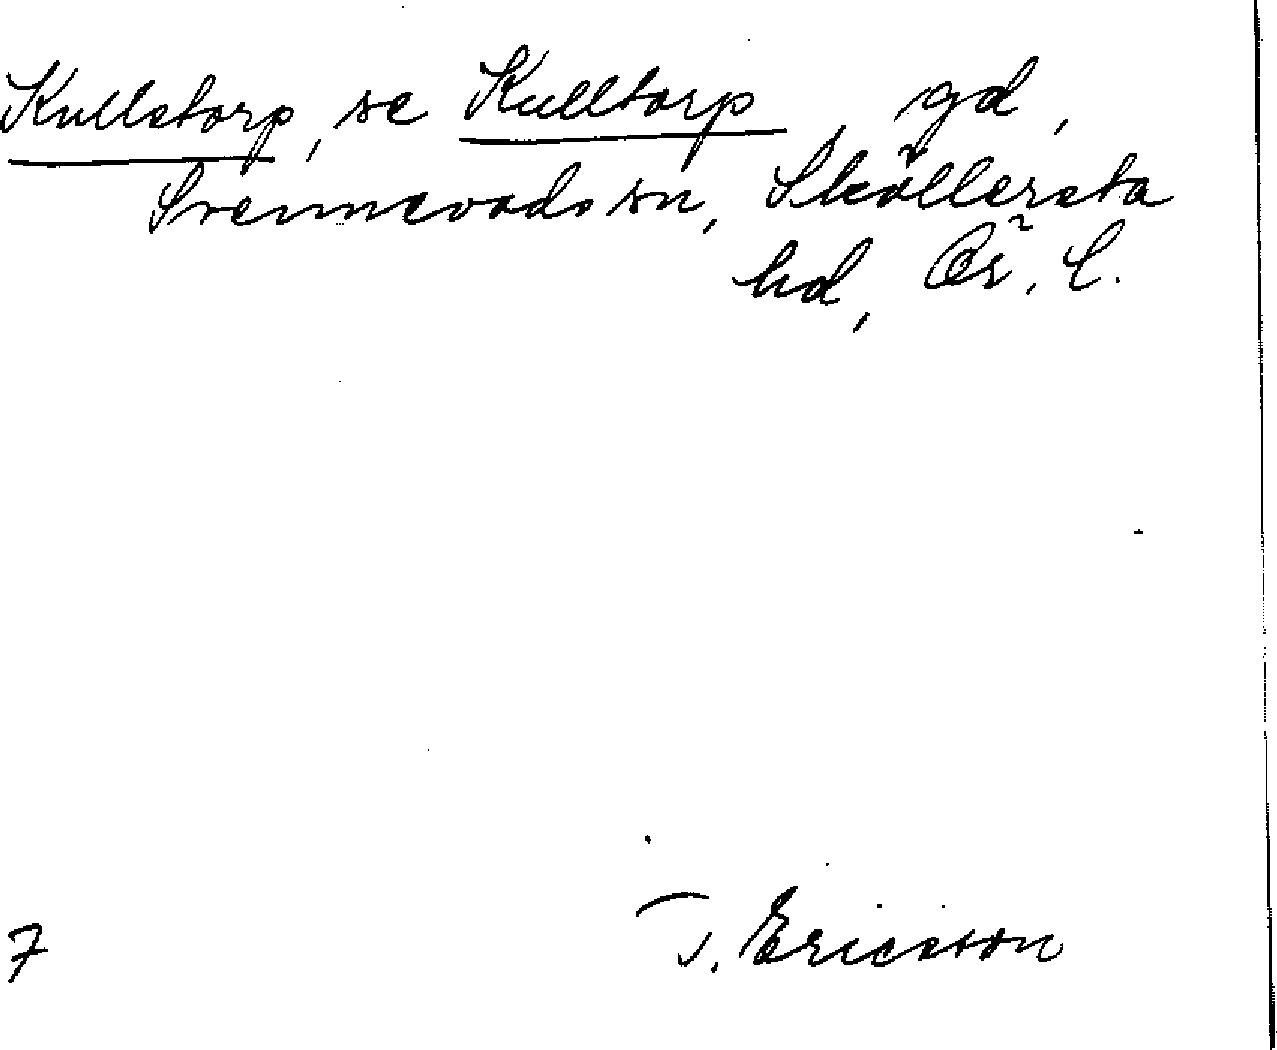 Kullstorp, se Kulltorp, gd,
Svennevads sn, Sköllersta
hd, Ör. l.
T. Ericsson
7